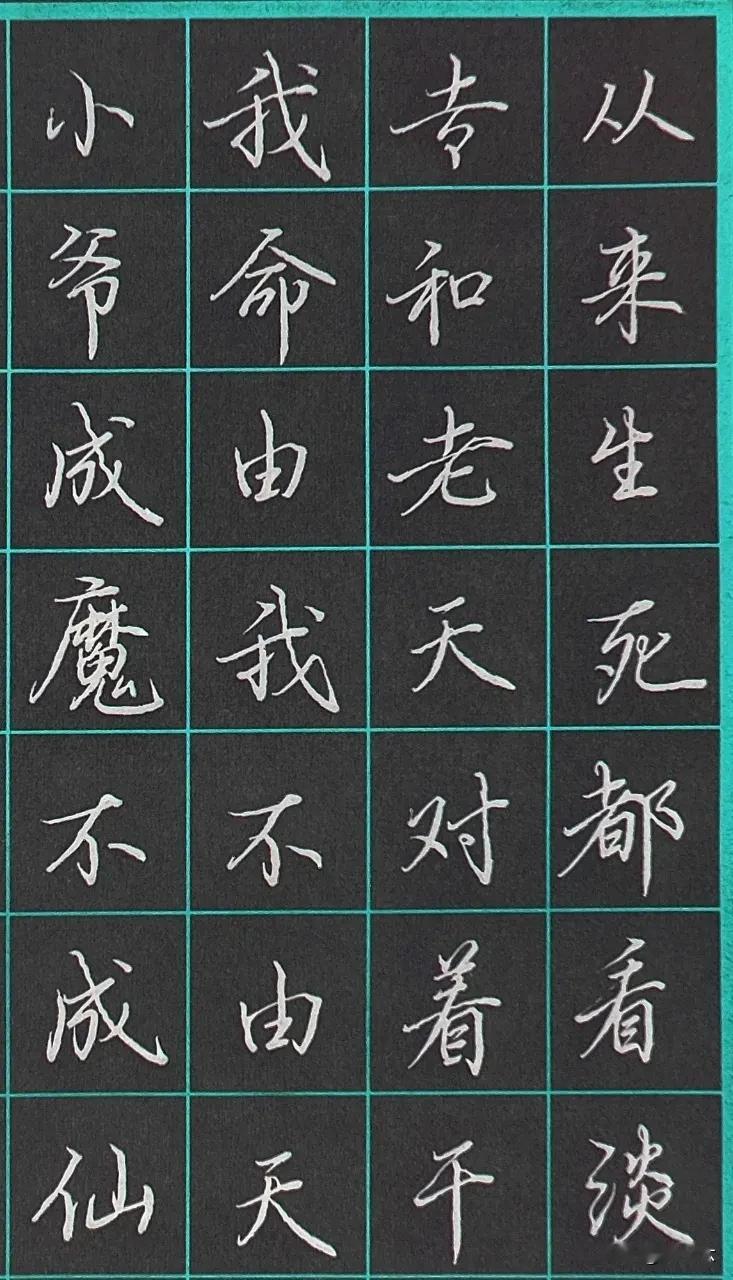 从来生死都看淡
专和老天对着干
我命由我不由天
小爷成魔不成仙